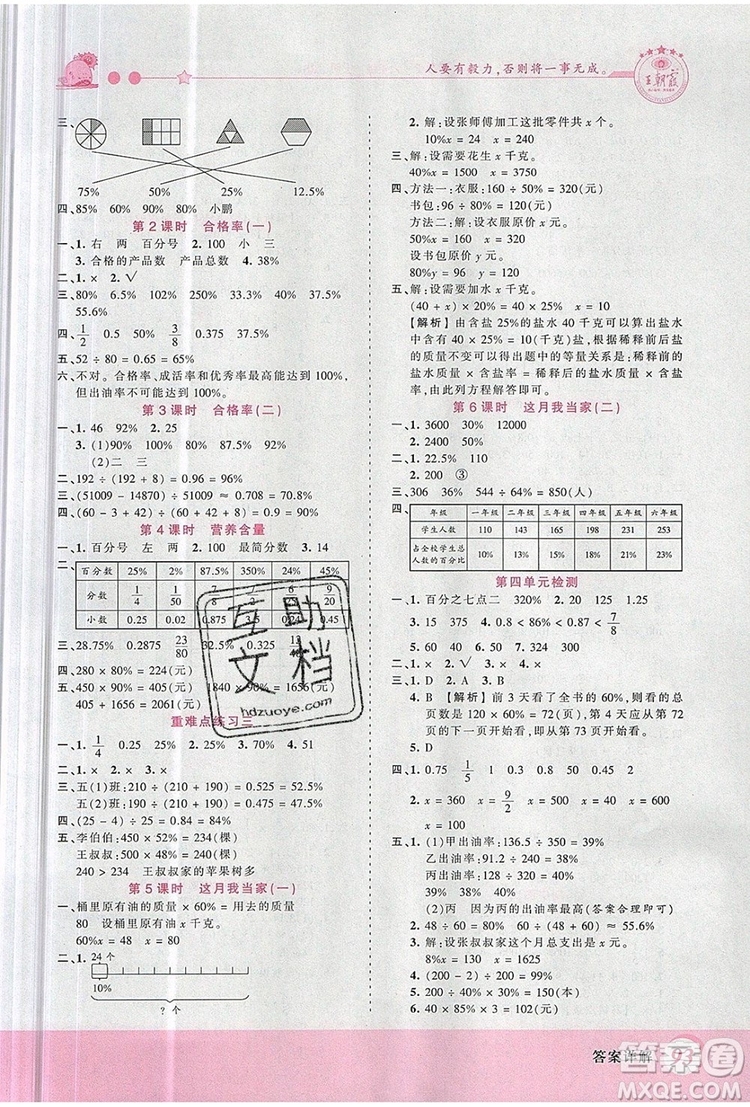 人要有毅力，否则将一事无成。
王朝霞
三、
75% 50% 25% 12.5%
四、85% 60% 90% 80% 小鹏
第2课时 合格率(一)
一、1. 右 两 百分号 2. 100 小 三
3. 合格的产品数 产品总数 4. 38%
二、1. × 2. √
三、80% 6.5% 102% 225% 33.3% 40% 37.5%
55.6%
四、1/2 0.5 50% 3/8 0.375 37.5%
五、52 ÷ 80 = 0.65 = 65%
六、不对。合格率、成活率和优秀率最高能达到 100%，
但出油率不可能达到 100%。
第3课时 合格率(二)
一、1. 46 92% 2. 0.25 25%
3. (1)90% 95% 100% 80% 90%
(2)二 三
二、192 ÷ (192 + 8) = 0.96 = 96%
三、(51009 - 14870) ÷ 51009 ≈ 0.708 = 70.8%
四、(60 - 3 + 42) ÷ (60 + 42) ≈ 0.971 = 97.1%
第4课时 营养含量
一、1. 百分号 左 两 2. 100 最简分数 3. 14
二、
百分数 25% 2% 87.5% 350% 24% 45%
分数 1/4 1/50 7 7 6 9
小数 0.25 0.02 0.875 3.5 0.24 0.45
三、28.75% 0.2875 23/80 32.5% 0.325 13
四、280 × 80% = 224(元)
五、450 × 90% = 405(元) 1840 × 90% = 1656(元)
405 + 1656 = 2061(元)
重难点练习三
一、1. 1/4 0.25 25% 2. 20% 3. 150 4. 51
二、1. × 2. × 3. × 4. √
三、五(1)班：210 ÷ (210 + 190) = 0.525 = 52.5%
五(2)班：210 ÷ (210 + 190) = 0.525 = 52.5%
四、(25 - 4) ÷ 25 = 0.84 = 84%
五、李伯伯：400 × 60% = 240(棵)
王叔叔：500 × 46.8% = 234(棵)
240 > 234 王叔叔家的苹果树多
第5课时 这月我当家(一)
一、桶里原有油的质量 × 60% = 用去的质量
80 设桶里原有油 x 千克。
60%x = 48 x = 80
二、1. 24 个
10%
? 个
2. 解：设张师傅加工这批零件共 x 个。
10%x = 24 x = 240
三、解：设需要花生 x 千克。
40%x = 1500 x = 3750
四、方法一：衣服：160 × 50% = 80(元)
书包：96 ÷ 80% = 120(元)
方法二：解：设衣服原价 x 元。
50%x = 80 x = 160
设书包原价 y 元。
80%y = 96 y = 120
五、解：设需要加水 x 千克。
(40 + x) × 10% = 40 × 25% x = 60
【解析】由含盐 25% 的盐水 40 千克可以算出盐水
中含有盐 40 × 25% = 10(千克)，根据稀释前后盐
的质量不变可以得出题中的等量关系是：稀释前的
盐水质量 × 含盐率 = 稀释后的盐水质量 × 含盐
率，由此列方程解答即可。
第6课时 这月我当家(二)
一、1. 3600 30% 12000
2. 2400 50%
二、1. 22.5% 2. 20 20%
2. 200 ③
三、306 36% 544 ÷ 64% = 850(人)
四、
年级 一年级 二年级 三年级 四年级 五年级 六年级
学生人数 110 143 165 198 231 253
占全校学生总人数的百分比 10% 13% 15% 18% 21% 23%
第四单元检测
一、1. 百分之七点二 2. 20 125 1.25
3. 15 375 4. 0.8 < 86% < 0.87 < 7/8
5. 60 40 6. 30 50 30
二、1. × 2. × 3. √ 4. × 5. ×
三、1. D 2. C 3. A
4. B 【解析】前 3 天看了全书的 60%，则看的总
页数是 120 × 60% = 72(页)，则第 4 天应从第 72
页的下一页开始看，即从第 73 页开始看。
5. D
四、1. 0.75 1/5 1 0.64 0.3
2. x = 360 x = 9/2 x = 500
五、1. (1)甲出油率：136.5 ÷ 350 = 39%
乙出油率：91.2 ÷ 240 = 38%
丙出油率：200 ÷ 500 = 40%
39% 38% 40%
(2)丙 因为丙的出油率最高(答案合理即可)
2. 48 ÷ 60 = 0.8 = 80%
3. 解：设张叔叔家这个月总支出是 x 元。
8%x = 130 x = 1625
4. (200 - 2) ÷ 200 = 0.99 = 99%
5. 200 × 40% = 80(元)
6. 40 × 85% × 3 = 102(元)
互助文档
hdzuoye.com
答案详解
答案圈
MXQE.COM